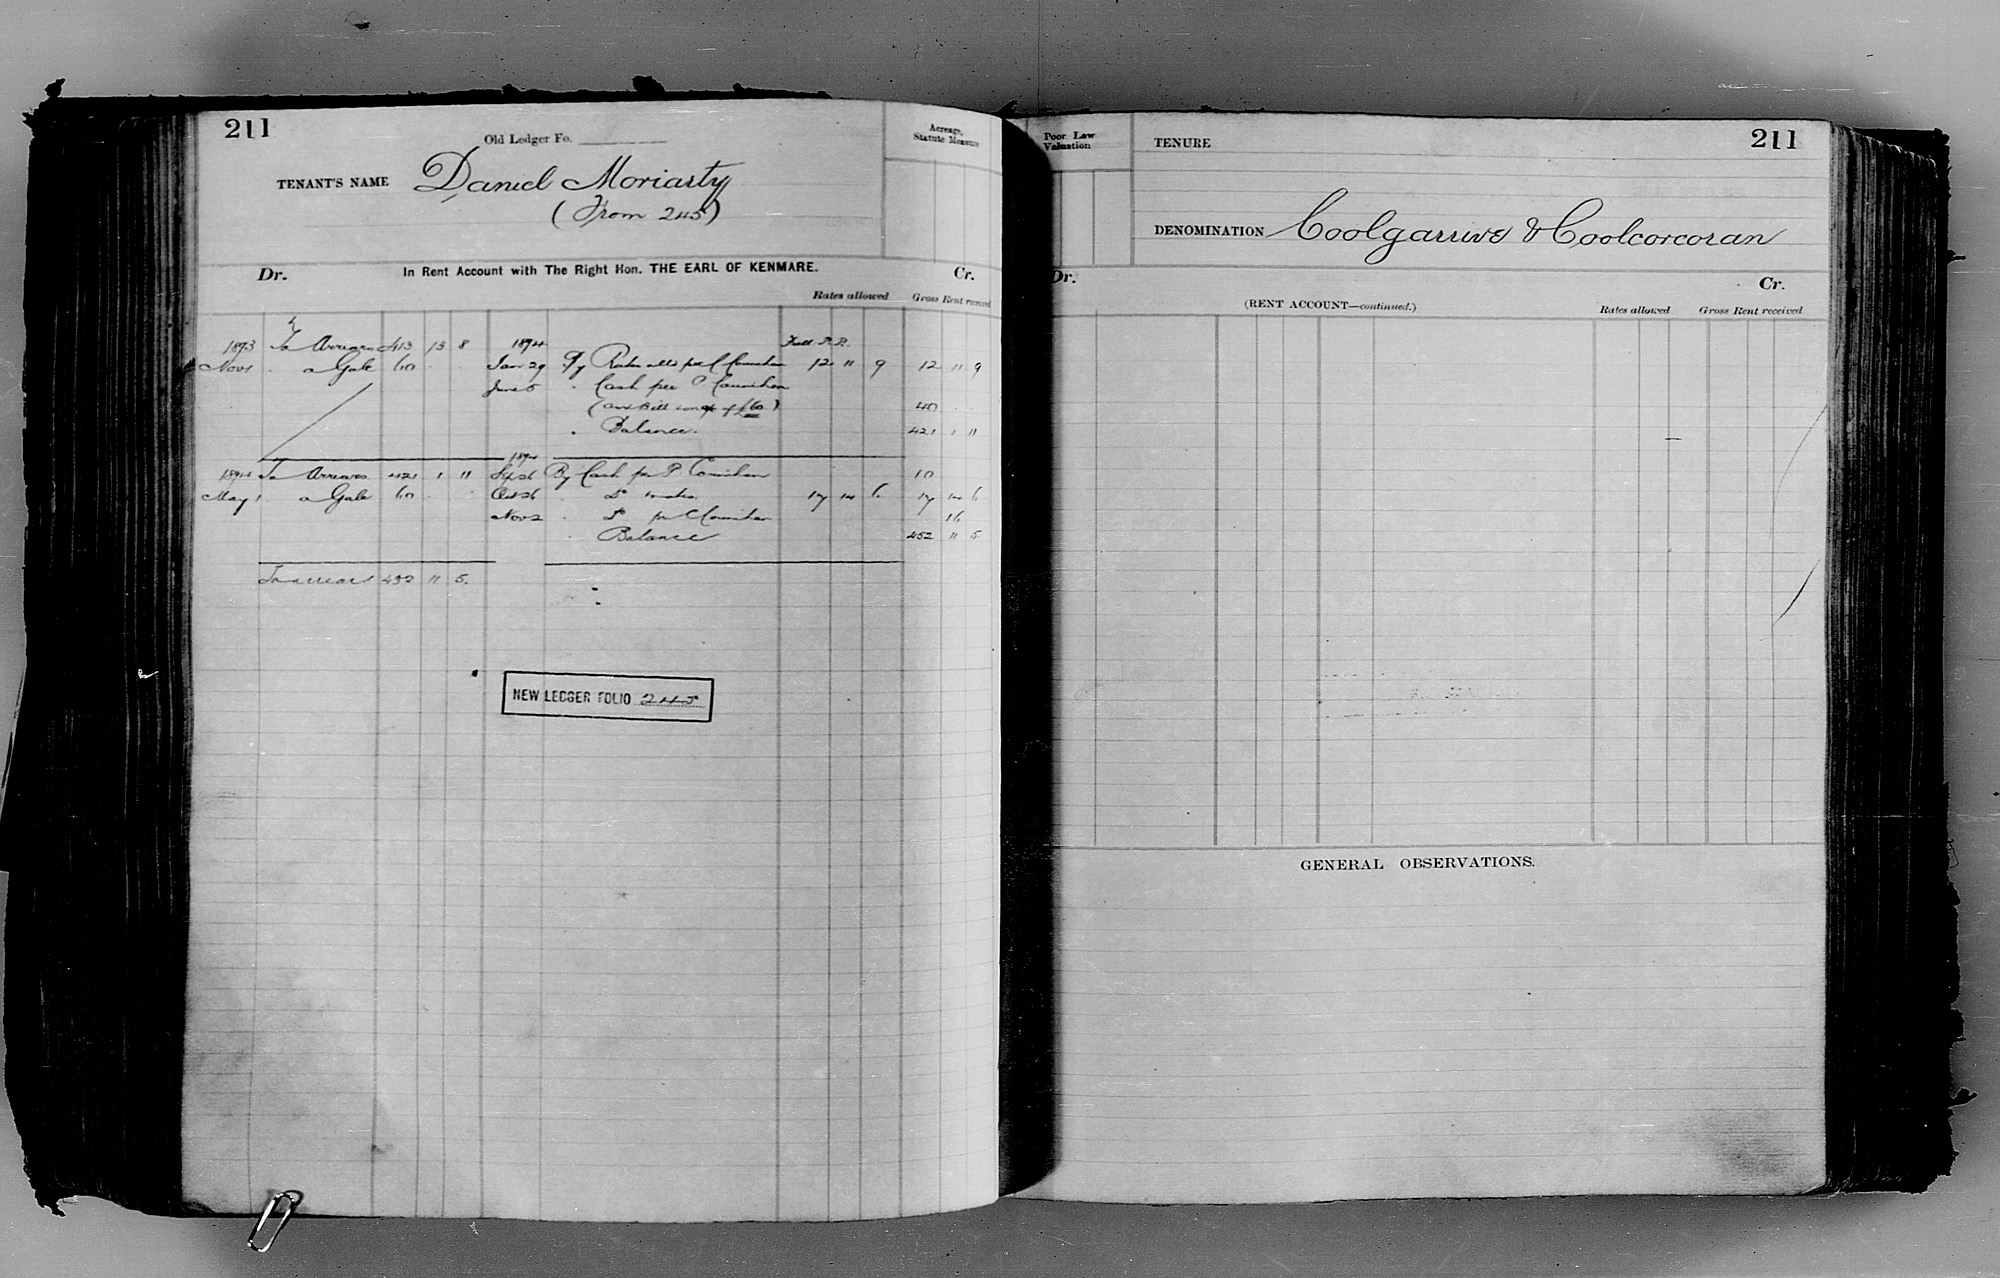 211
Old Ledger Fo.
Acreage,
Statute Measure
TENANT'S NAME Daniel Moriarty
(From 245)
Dr. In Rent Account with The Right Hon. THE EARL OF KENMARE. Cr.
Rates allowed Gross Rent received
1893 To Arrears 413 13 8 1894
Nov 1 " a Gale 60 Jan 29 By Rates 12 11 9 12 11 9
June 5 " Cash per P Counihan
40
" Balance 421 1 11
1894
1894 To Arrears 421 1 11 Sep 26 By Cash per P Counihan 10
May 1 a Gale 60 Oct 26 " Do 17 14 6 17 14 6
Nov 2 " Do per Counihan
Balance 452 11 5
To arrears 452 11 5
NEW LEDGER FOLIO 245
Poor Law
Valuation
TENURE
211
DENOMINATION Coolgarrive & Coolcorcoran
Dr. Cr.
(RENT ACCOUNT—continued.)
Rates allowed Gross Rent received
GENERAL OBSERVATIONS.